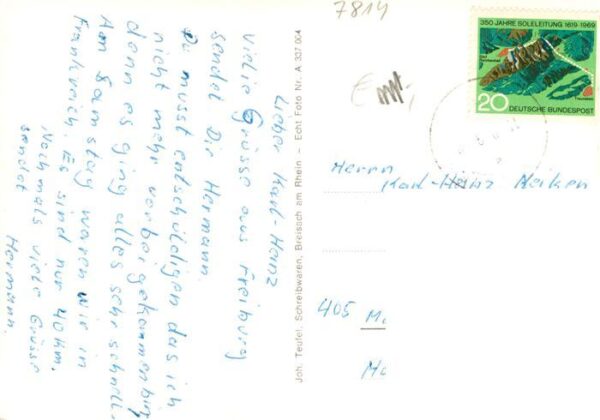 7814
350 JAHRE SOLELEITUNG 1619-1969
Bad Reichenhall
Traunstein
20 DEUTSCHE BUNDESPOST
Lieber Karl-Heinz
viele Grüsse aus Freiburg
sendet Dir Hermann.
Du musst entschuldigen das ich
nicht mehr vorbeigekommen bin
denn es ging alles sehr schnell.
Am Samstag waren wir in
Frankreich. Es sind nur 40 km.
Nochmals viele Grüsse
sendet
Hermann.
Joh. Teufel, Schreibwaren, Breisach am Rhein – Echt Foto Nr. A 337 004
Herrn
Karl-Heinz Meiken
405 M.